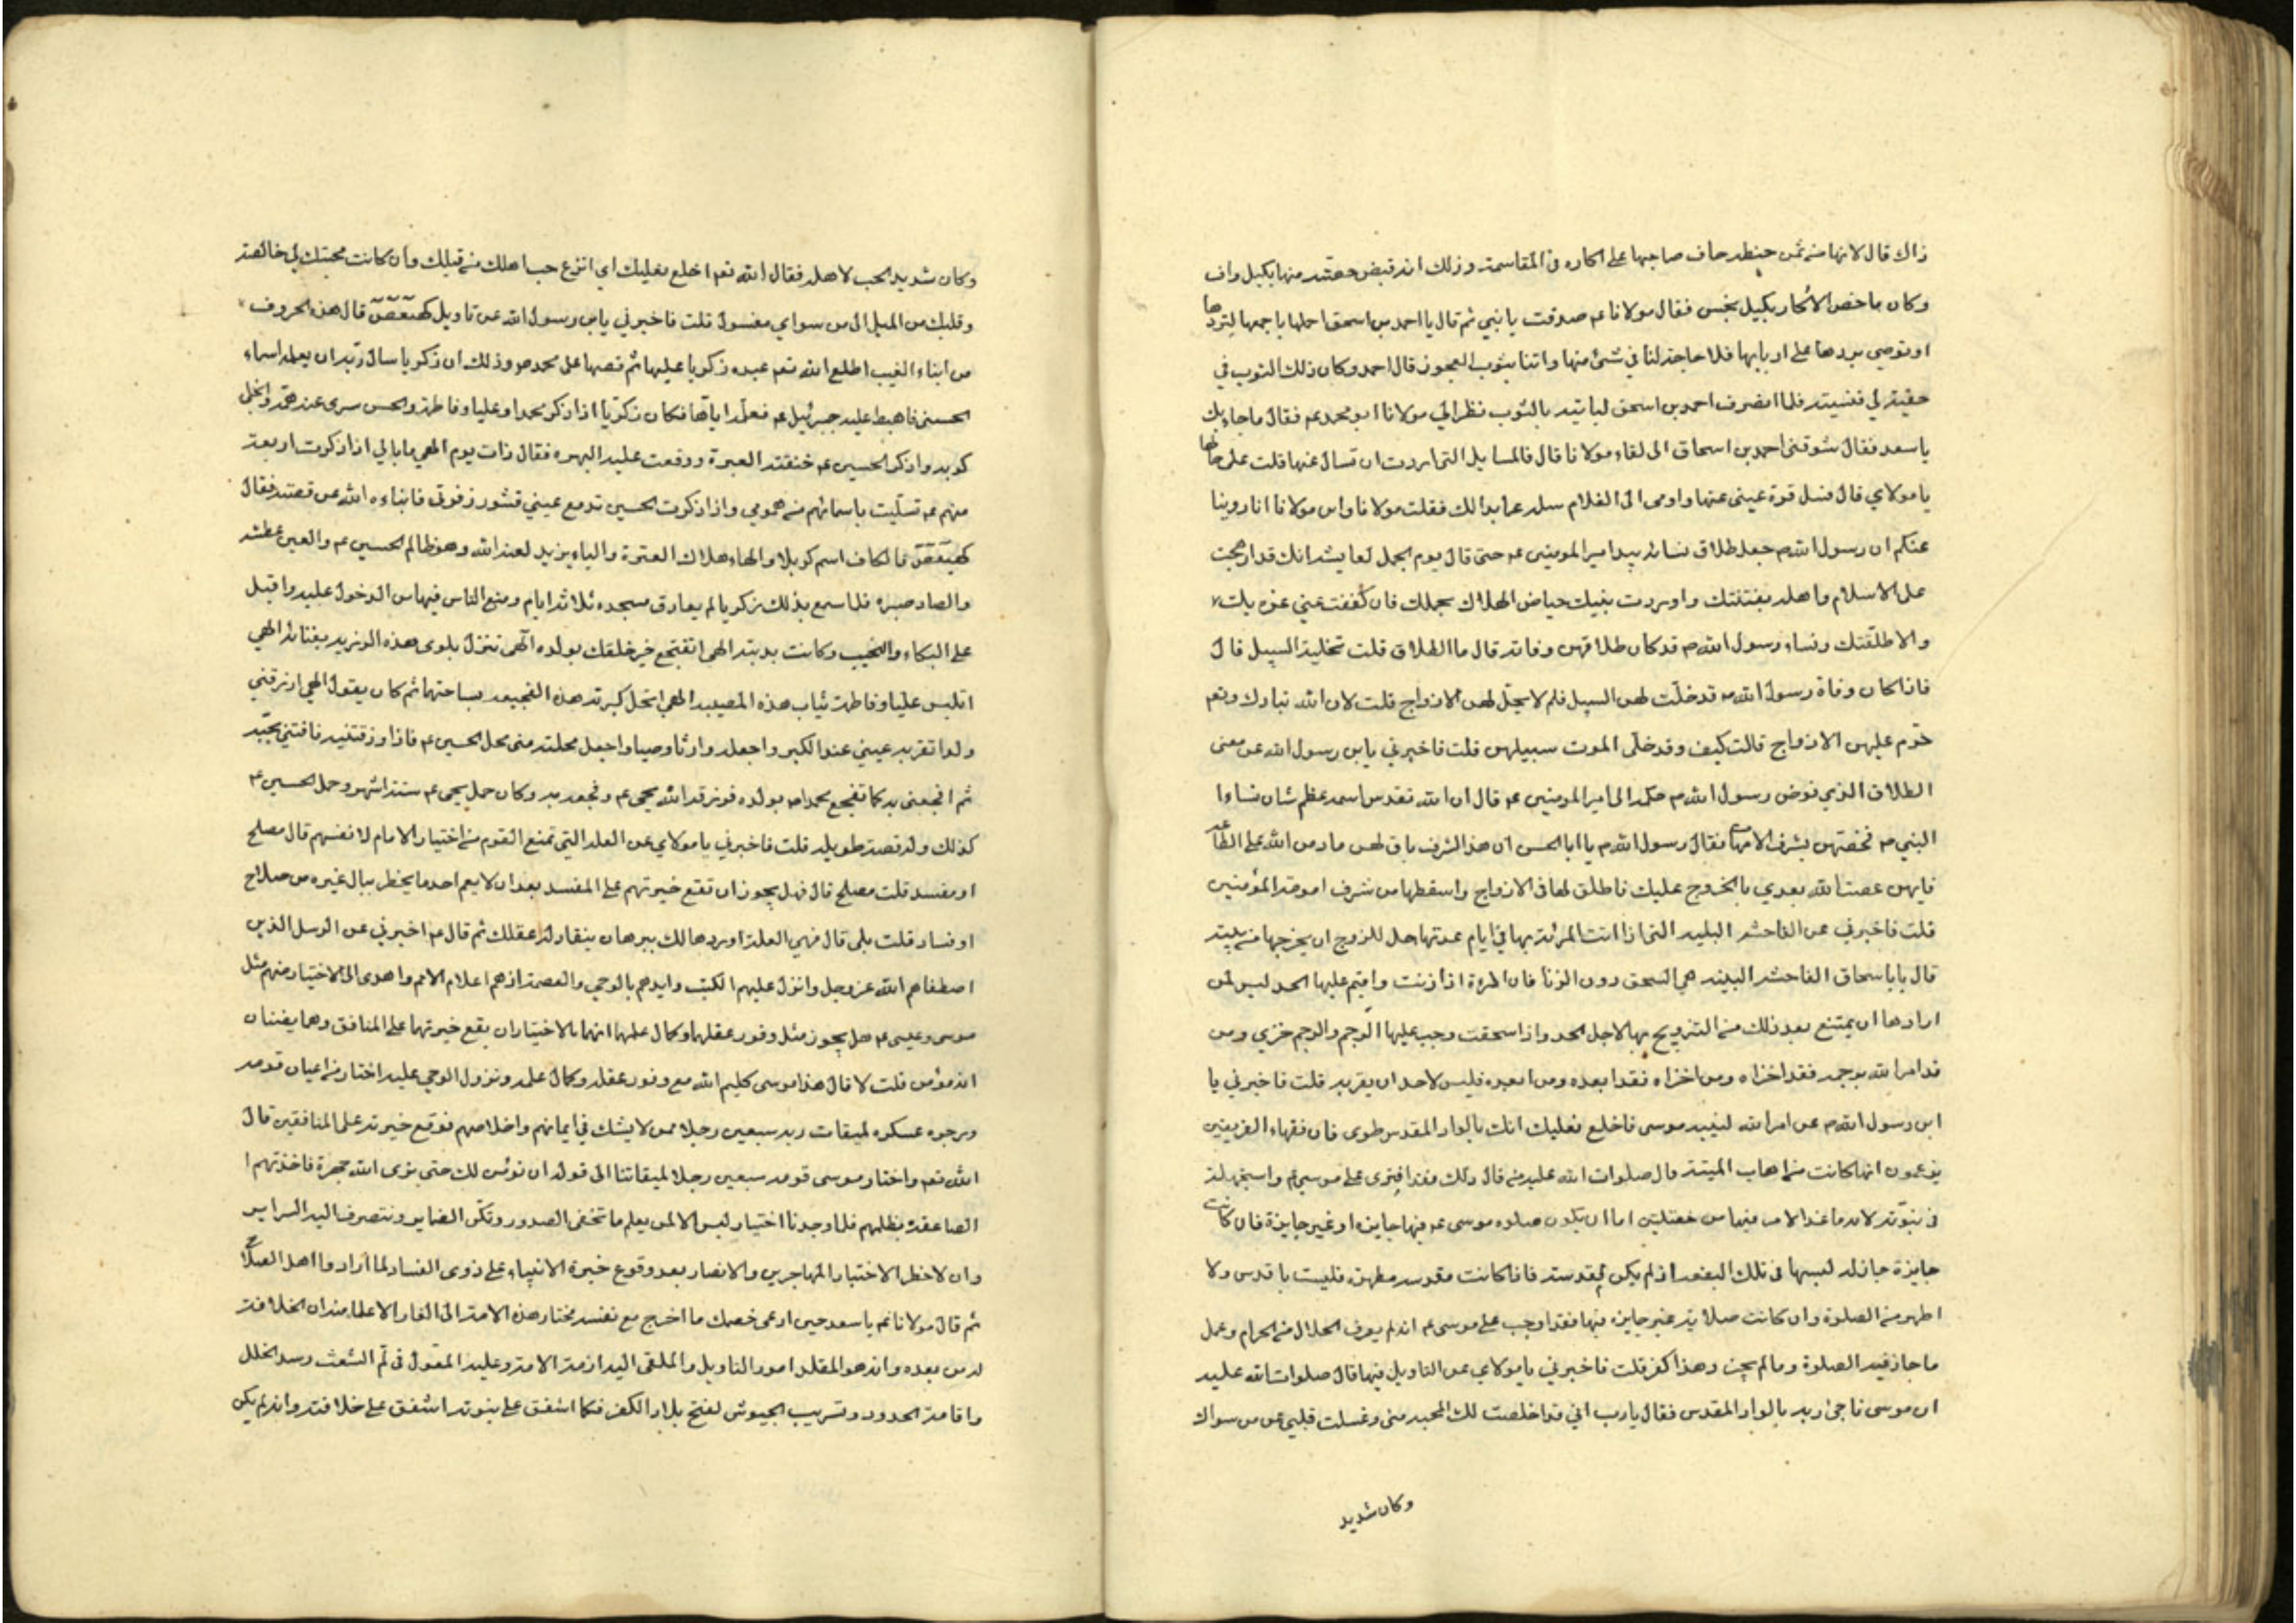 ذاك قال لانها من ثمن حنطة حاف صاحبها على اكاره في المقاسمة وذلك انه قبض حصته منها بكيل واف
وكان ما خص الاكار بكيل بخس فقال مولانا عم صدقت يا بني ثم قال يا احمد بن اسحق احملها باجمعها لتردها
او توصي بردها على اربابها فلا حاجة لنا في شئ منها واتنا بثوب العجوز قال احمد وكان ذلك الثوب في
حقيبة لي فنسيته فلما انصرف احمد بن اسحق لياتيه بالثوب نظر الي مولانا ابو محمد عم فقال ما جاء بك
يا سعد فقال شوقني احمد بن اسحاق الى لقاء مولانا قال فالمسايل التي اردت ان تسال عنها قلت على حالها
يا مولاي قال فسل قرة عيني عنها واومى الى الغلام سله عما بدا لك فقلت مولانا وابن مولانا انا روينا
عنكم ان رسول الله ص جعل طلاق نسائه بيد امير المومنين عم حتى قال يوم الجمل لعايشه انك قد ارهجت
على الاسلام واهله بفتنتك واوردت بنيك حياض الهلاك بجهلك فان كففت عني غربك
والا طلقتك ونساء رسول الله ص قد كان طلاقهن وفاته قال ما الطلاق قلت تخلية السبيل قال
فاذا كان وفاة رسول الله ص قد خلت لهن السبيل فلم لا يحل لهن الازواج قلت لان الله تبارك وتعم
حرم عليهن الازواج قالت كيف وقد خلى الموت سبيلهن قلت فاخبرني يا بن رسول الله عن معنى
الطلاق الذي فوض رسول الله ص حكمه الى امير المومنين عم قال ان الله تقدس اسمه عظم شان نساء ا
النبي ص فخصهن بشرف الامهات فقال رسول الله ص يا ابا الحسن ان هذا الشرف باق لهن ما دمن الله على الطاعة
فايهن عصت الله بعدي بالخروج عليك فاطلق لها في الازواج واسقطها من شرف امومة المؤمنين
قلت فاخبرني عن الفاحشة البينه التي اذا اتت المرئة بها في ايام عدتها حل للزوج ان يخرجها من بيته
قال يا با سحاق الفاحشة البينه هي السحق دون الزنا فان المرءة اذا زنت واقيم عليها الحد ليس لمن
ارادها ان يمتنع بعد ذلك من التزويج بها لاجل الحد واذا سحقت وجب عليها الرجم والرجم خزي ومن
قد امر الله برجمه فقد اخزاه ومن اخزاه فقد ابعده ومن ابعده فليس لاحد ان يقربه قلت فاخبرني يا
ابن رسول الله ص عن امر الله لنبيه موسى فاخلع نعليك انك بالواد المقدس طوى فان فقهاء الفريقين
يزعمون انها كانت من اهاب الميتة قال صلوات الله عليه من قال ذلك فقد افترى على موسى عم واستجهله
في نبوته لانه ما خلا الامر فيها من خصلتين اما ان يكون صلوه موسى عم فيها جايزه او غير جايزة فان كانت
جايزة جاز له لبسها في تلك البقعه اذ لم يكن مقدسة فاذا كانت مقدسه مطهره فليست باقدس ولا
اطهر من الصلوة وان كانت صلاته غير جايزه فيها فقد اوجب على موسى عم انه لم يعرف الحلال من الحرام وعمل
ما جاز فيه الصلوة وما لم يجز وهذا كفر قلت فاخبرني يا مولاي عن التاويل فيها قال صلوات الله عليه
ان موسى ناجى ربه بالواد المقدس فقال يا رب اني قد اخلصت لك المحبه مني وغسلت قلبي عن من سواك
وكان شديد
وكان شديد الحب لاهله فقال الله تعم اخلع نعليك اي انزع حب اهلك من قبلك وان كانت محبتك لي خالصة
وقلبك من الميل الى من سواي مغسول قلت فاخبرني يا بن رسول الله عن تاويل كهيعص قال هذه الحروف
من انباء الغيب اطلع الله تعم عبده زكريا عليها ثم قصها على محمد ص وذلك ان زكريا سال ربه ان يعلمه اسماء
الخمسه فاهبط عليه جبرئيل عم فعلمه اياها فكان زكريا اذا ذكر محمدا وعليا وفاطمة والحسن سرى عنه همه وانجلى
كربه واذكر الحسين عم خنقته العبرة ووقعت عليه البهره فقال ذات يوم الهي ما بالي اذا ذكرت اربعة
منهم عم تسليت باسمائهم من همومي واذا ذكرت الحسين تدمع عيني وتثور زفرتي فانباءه الله عن قصته فقال
كهيعص فالكاف اسم كربلا والهاء هلاك العترة والياء يزيد لعنه الله وهو ظالم الحسين عم والعين عطشه
والصاد صبره فلما سمع بذلك زكريا لم يفارق مسجده ثلاثة ايام ومنع الناس فيها من الدخول عليه واقبل
على البكاء والنحيب وكانت يدبته الهي اتفجع خير خلقك بولده الهي تنزل بلوى هذه الرزيه بفنائه الهي
اتلبس عليا وفاطمة ثياب هذه المصيبه الهي اتحل كربة هذه الفجيعه بساحتهما ثم كان يقول الهي ارزقني
ولدا تقر به عيني عند الكبر واجعله وارثا وصيا واجعل محله مني محل الحسين عم فاذا رزقتنيه فافتني بحبه
ثم افجعني به كما تفجع محمد ص بولده فرزقه الله يحيى عم وفجعه به وكان حمل يحيى عم ستة اشهر وحمل الحسين عم
كذلك وله قصة طويله قلت فاخبرني يا مولاي عن العله التي تمنع القوم من اختيار الامام لانفسهم قال مصلح
او مفسد قلت مصلح قال فهل يجوز ان تقع خيرتهم على المفسد بعد ان لا يعلم احد ما يخطر ببال غيره من صلاح
او فساد قلت بلى قال فهي العلة اوردها لك ببرهان ينقاد له عقلك ثم قال عم اخبرني عن الرسل الذين
اصطفاهم الله عز وجل وانزل عليهم الكتب وايدهم بالوحي والعصمة اذ هم اعلام الامم واهدى الى الاختيار منهم مثل
موسى وعيسى عم هل يجوز مثل وفور عقلهما وكمال علمهما انهما بالاختيار ان يقع خيرتهما على المنافق وهما يظنان
انه مؤمن قلت لا قال هذا موسى كليم الله مع وفور عقله وكمال علمه ونزول الوحي عليه اختار من اعيان قومه
ووجوه عسكره لميقات ربه سبعين رجلا ممن لا يشك في ايمانهم واخلاصهم فوقع خيرته على المنافقين قال
الله تعم واختار موسى قومه سبعين رجلا لميقاتنا الى قوله ان نؤمن لك حتى نرى الله جهرة فاخذتهم ا
الصاعقة بظلمهم فلما وجدنا اختيار ليس الا لمن يعلم ما تخفى الصدور وتكن الضماير وتتصرف اليه السراير
وان لا خطر لاختيار المهاجرين والانصار بعد وقوع خيرة الانبياء على ذوى الفساد لما ارادوا اهل الصلاح
ثم قال مولانا عم يا سعد حين ادعى خصمك ما اخرج مع نفسه مختار هذه الامة الى الغار الا علما منه ان الخلافة
له من بعده وانه هو المقلد امور التاويل والملقى اليه ازمة الامة وعليه المعول في لم الشعث وسد الخلل
واقامة الحدود وتسريب الجيوش لفتح بلاد الكفر فكما اشفق على نبوته اشفق على خلافته وانه لم يكن